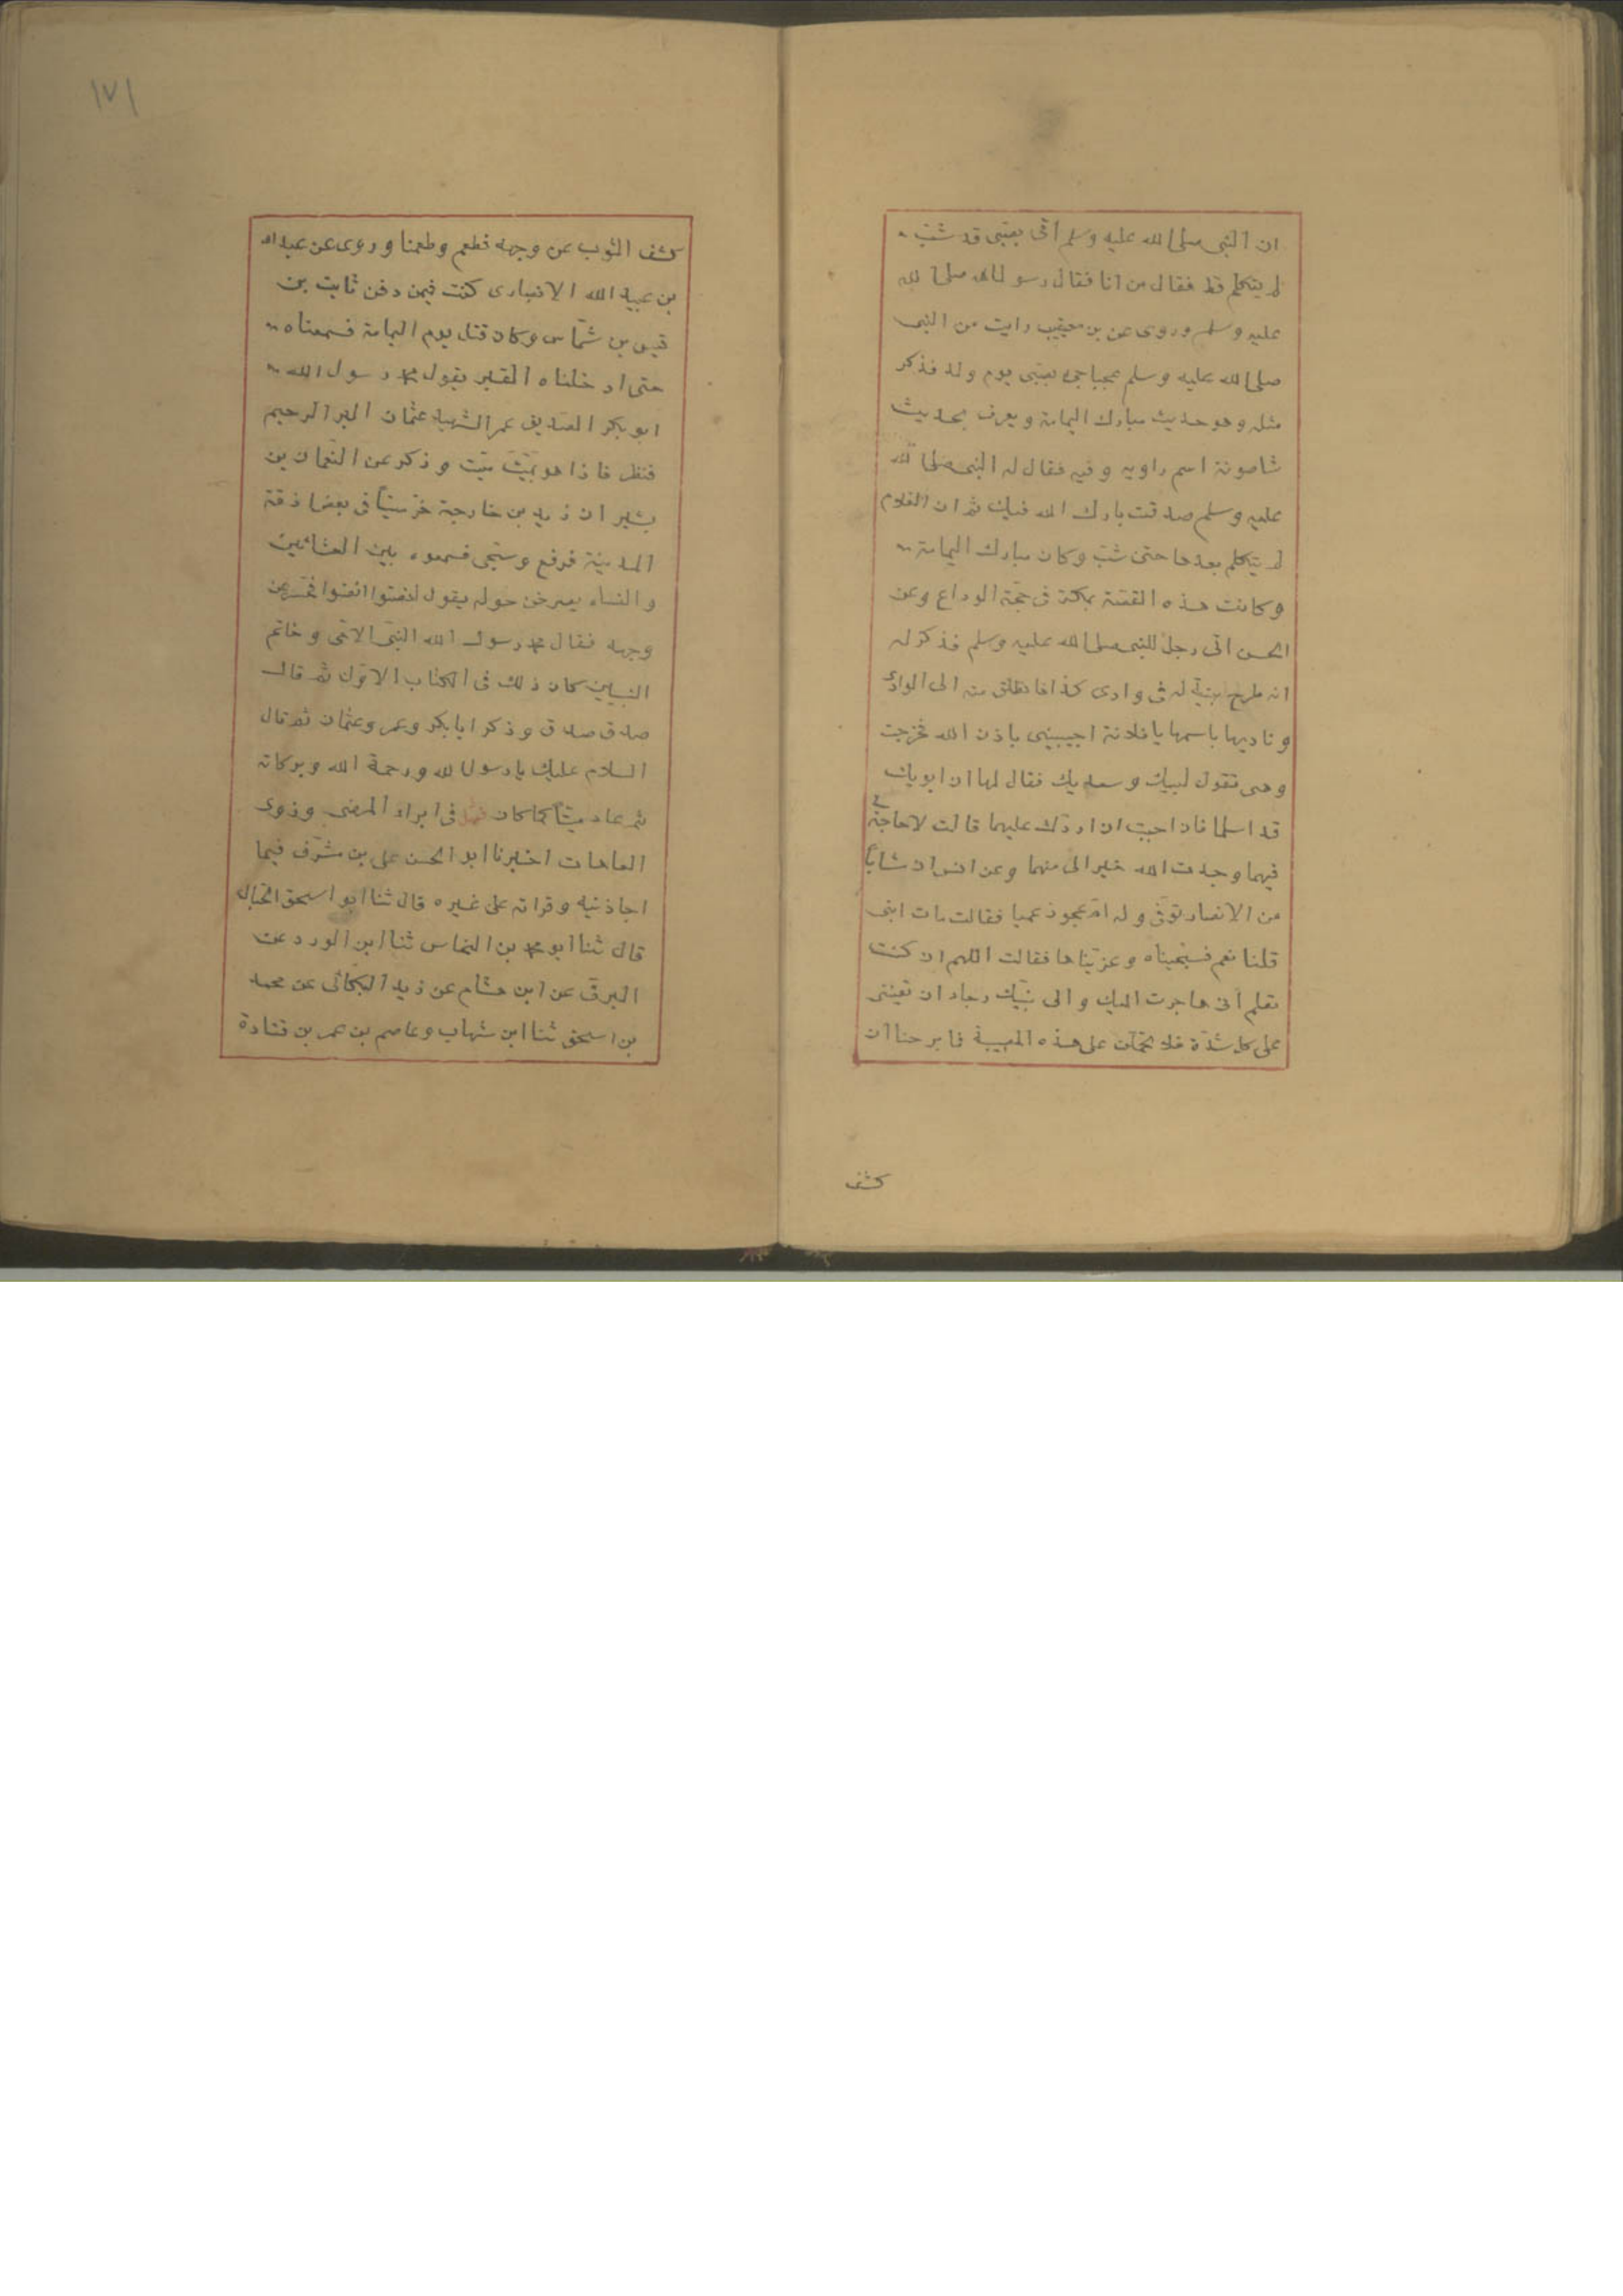 ان النبى صلى الله عليه وسلم اتى بصبى قد شبّ
لم يتكلم قط فقال من انا فقال رسول الله صلى الله
عليه وسلم وروى عن بن معيقيب رايت من النبى
صلى الله عليه وسلم عجبا جئ بصبى يوم ولد فذكر
مثله وهو حديث مبارك اليمامة ويعرف بحديث
شاصونة اسم راويه وفيه فقال له النبى صلى الله
عليه وسلم صدقت بارك الله فيك ثم ان الغلام
لم يتكلم بعدها حتى شبّ وكان مبارك اليمامة
وكانت هذه القصّة بمكة فى حجّة الوداع وعن
الحسن اتى رجل للنبى صلى الله عليه وسلم فذكر له
انه طرح بنيّة له فى وادى كذا فانطلق معه الى الوادى
وناديها باسمها يا فلانة اجيبينى باذن الله فخرجت
وهى تقول لبيك وسعديك فقال لها ان ابويك
قد اسلما فان احببت ان اردّك عليهما قالت لا حاجة لى
فيهما وجدت الله خيرا لى منهما وعن انس ان شابًّا
من الانصار توفّى وله امّ عجوز عميا فقالت مات ابنى
قلنا نعم فسجّيناه وعزّيناها فقالت اللهم ان كنت
تعلم انى هاجرت اليك والى نبيّك رجاء ان تعيننى
على كل شدّة فلا تحملن على هذه المصيبة فما برحنا ان
كشف
١٧١
كشف الثوب عن وجهه فطعم وطعمنا وروى عن عبد الله
بن عبيد الله الانصارى كنت فيمن دفن ثابت بن
قيس بن شمّاس وكان قتل يوم اليمامة فسمعناه
حتى ادخلناه القبر يقول محمد رسول الله
ابو بكر الصديق عمر الشهيد عثمان البر الرحيم
فنظر فاذا هو ميّت وذكر عن النعمان بن
بشير ان زيد بن خارجة خرّ ميتًا فى بعض ازقة
المدينة فرفع وسجّى فسمعوه بين العشائين
والنساء يصرخن حوله يقول انصتوا انصتوا فحسر عن
وجهه فقال محمد رسول الله النبى الامّى وخاتم
النبيين كان ذلك فى الكتاب الاوّل ثم قال
صدق صدق وذكر ابا بكر وعمر وعثمان ثم قال
السلام عليك يا رسول الله ورحمة الله وبركاته
ثم عاد ميتًا كما كان فصل فى ابراء المرضى وذوى
العاهات اخبرنا ابو الحسن على بن مشرّف فيما
اجازنيه وقراته على غيره قال ثنا ابو اسحق الحبال
قال ثنا ابو محمد بن النحاس ثنا ابن الورد عن
البرقى عن ابن هشام عن زيد البكائى عن محمد
بن اسحق ثنا ابن شهاب وعاصم بن عمر بن قتادة